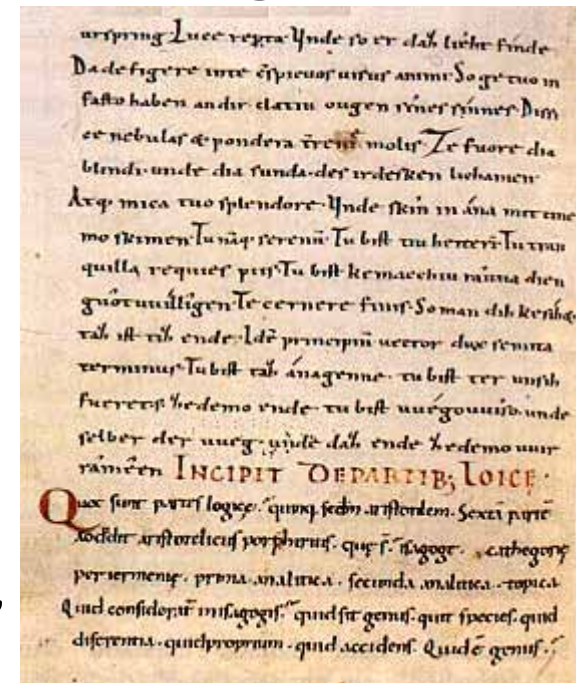 urspring. Luce reꝑta. Ynde so er daȟ lieht finde.
Da defigere in te ꝯspicuos uisus animi. So ge tuo in
fasto haben an dir clariu ougen sînes sinnes. Diss
ce nebulas & pondera tr̄enę molis. Ze fuore dia
blindi. unde dia sunda. des irdesken lichamen.
Atq; mica tuo splendore. Ynde skîn in ána mit tine
mo skimen. Tu nāq; serenū. Tu bist tiu heiteri. Tu tran
quilla requies piis. Tu bist kemacchiu râuua dien
guôt uuilligen. Te cernere finis. So man dih kesihet
taȟ ist tiȟ ende. Idē principiū uector dux semita
terminus. Tu bist taȟ ánagenne. tu bist ter unsih
fueret. ȟedemo ende. tu bist uuégouuiso. unde
selber der uueg. unde daȟ ende ȟedemo uuir
râmeen INCIPIT DE PARTIB; LOICE.
Quę sunt partes logicę. quinq; scďm aristotelem. Sextā partē
addidit aristotelicus porphirius. quę s̄. isagogę. cathegorię
periermenię. prima analitica. secunda analitica. topica
Quid considerat̄ in isagogis. quid sit genus. quit species. quid
diferentia. quid proprium. quid accidens. Quid ē genus.